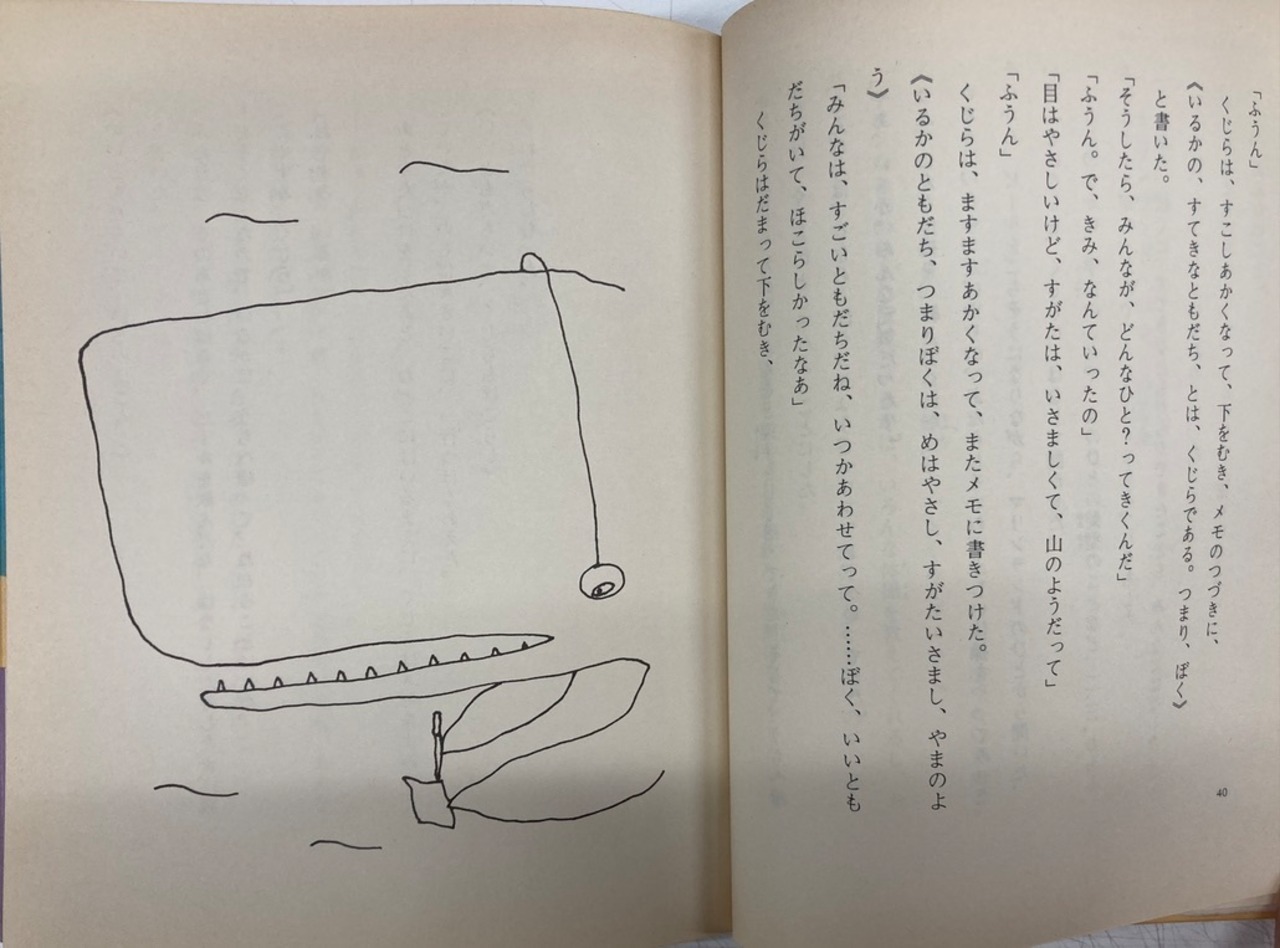 「ふうん」
くじらは、すこしあかくなって、下をむき、メモのつづきに、
《いるかの、すてきなともだち、とは、くじらである。つまり、ぼく》
と書いた。
「そうしたら、みんなが、どんなひと？ってきくんだ」
「ふうん。で、きみ、なんていったの」
「目はやさしいけど、すがたは、いさましくて、山のようだって」
「ふうん」
くじらは、ますますあかくなって、またメモに書きつけた。
《いるかのともだち、つまりぼくは、めはやさし、すがたいさまし、やまのよ
う》
「みんなは、すごいともだちだね、いつかあわせてって。……ぼく、いいとも
だちがいて、ほこらしかったなあ」
くじらはだまって下をむき、
40